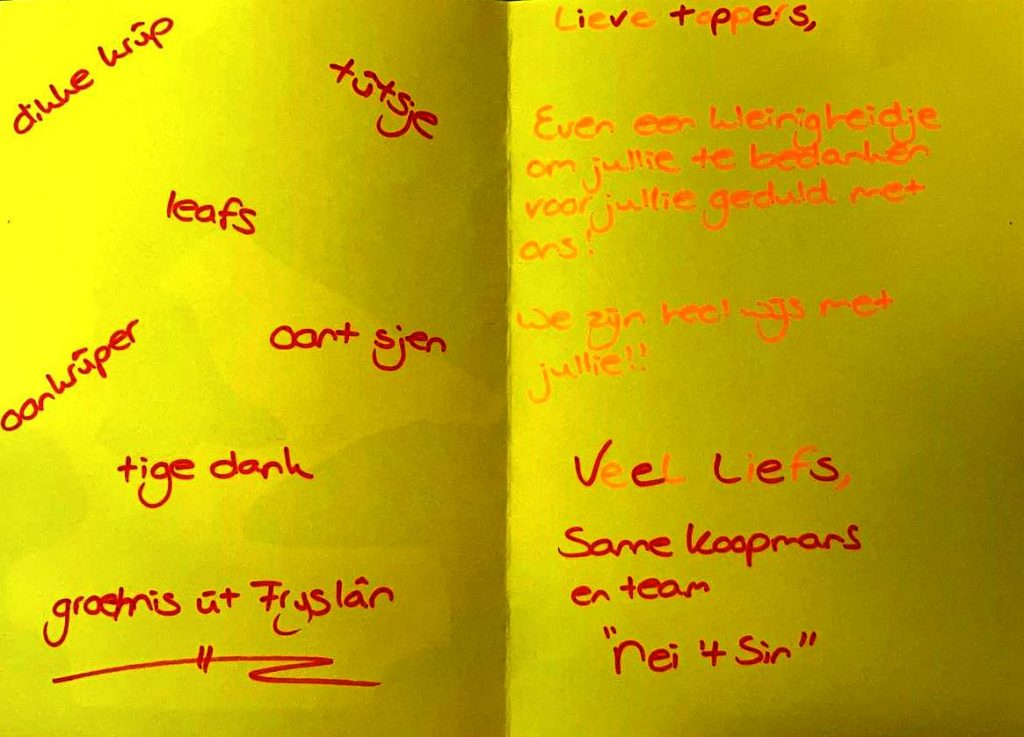 dikke krûp
tûtsje
leafs
oant sjen
oankrûper
tige dank
groetnis út Fryslân
Lieve toppers,
Even een kleinigheidje
om jullie te bedanken
voor jullie geduld met
ons!
We zijn heel wijs met
jullie!!
Veel Liefs,
Sanne Koopmans
en team
"Nei 't Sin"